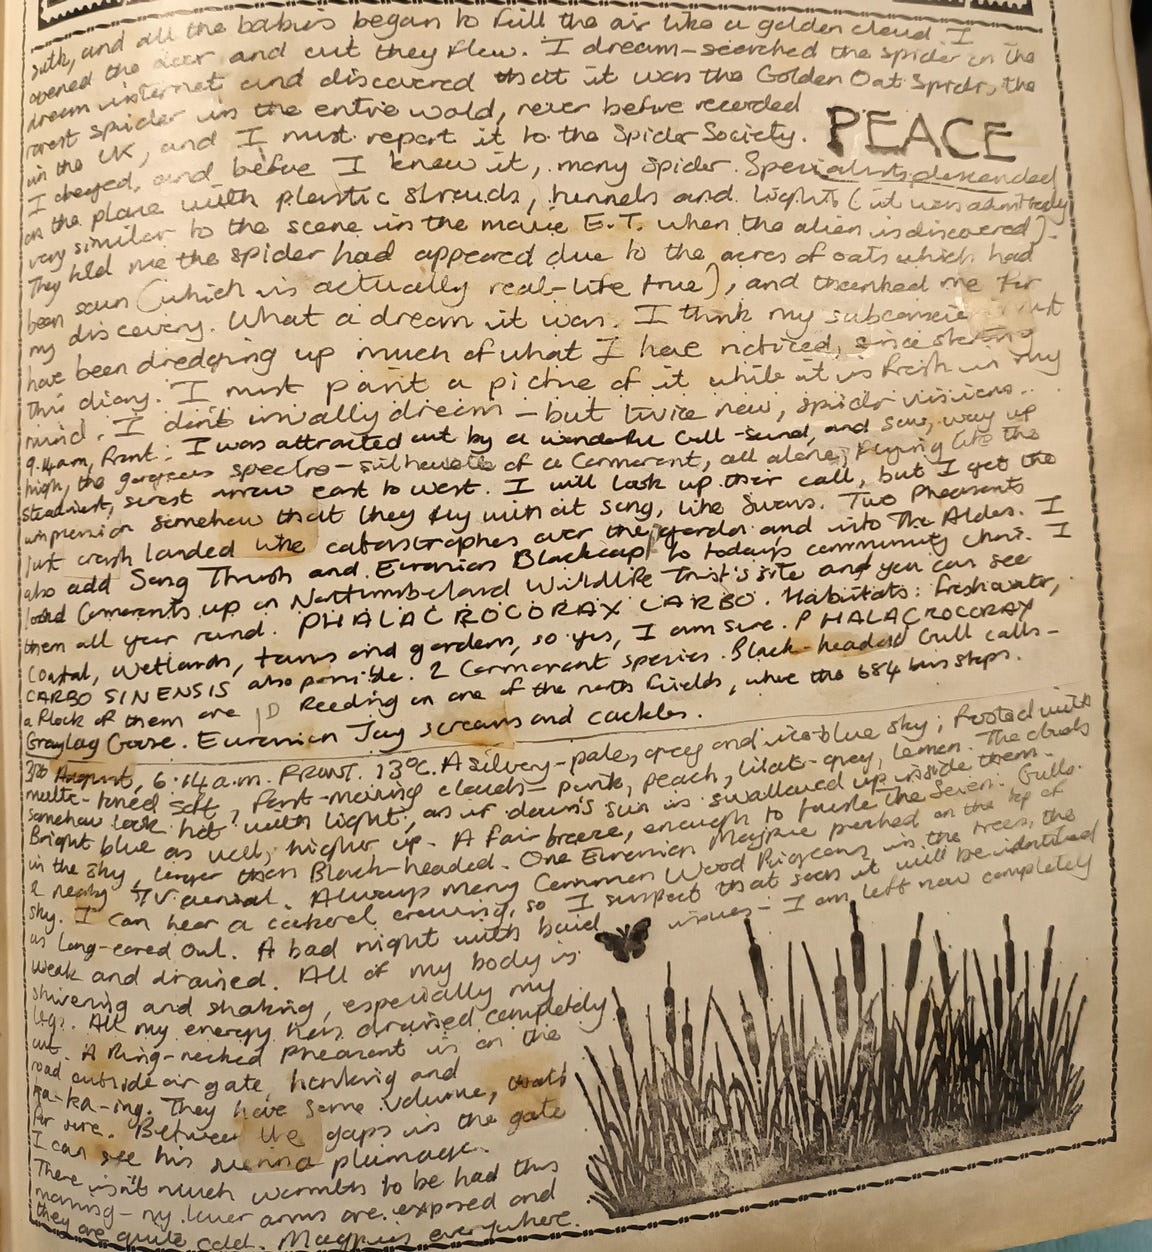 silk, and all the babies began to fill the air like a golden cloud. I
opened the door and out they flew. I dream-searched the spider on the
dream internet and discovered that it was the Golden Oat Spider, the
rarest spider in the entire world, never before recorded
in the UK, and I must report it to the Spider Society.
PEACE
I obeyed, and before I knew it, many Spider Specialists descended
on the place with plastic shrouds, tunnels and lights (it was admittedly
very similar to the scene in the movie E.T. when the alien is discovered).
They told me the spider had appeared due to the acres of oats which had
been sown (which is actually real-life true), and thanked me for
my discovery. What a dream it was. I think my subconscious must
have been dredging up much of what I have noticed, since starting
this diary. I must paint a picture of it while it is fresh in my
mind. I don't usually dream - but twice now, spider visions..
9.14am, Front: I was attracted out by a wonderful call-sound, and saw, way up
high, the gorgeous spectre-silhouette of a Cormorant, all alone, flying like the
steadiest, surest arrow east to west. I will look up their call, but I get the
impression somehow that they fly without song, like Swans. Two Pheasants
just crash landed like catastrophes over the garden and into The Aldes. I
also add Song Thrush and Eurasian Blackcap to today's community choir. I
looked Cormorants up on Northumberland Wildlife Trust's site and you can see
them all year round. PHALACROCORAX CARBO. Habitats: Freshwater,
Coastal, Wetlands, towns and gardens, so yes, I am sure. PHALACROCORAX
CARBO SINENSIS also possible. 2 Cormorant species. Black-headed Gull calls -
a flock of them are feeding on one of the north fields, where the 684 bus stops.
Graylag Goose. Eurasian Jay screams and cackles.
August, 6:14a.m. FRONT. 13°C. A silvery-pale, grey and ice-blue sky; frosted with
multi-toned soft, fast-moving clouds - pink, peach, lilac-grey, lemon. The clouds
somehow look hot with light, as if dawn's sun is swallowed up inside them.
Bright blue as well, higher up. A fair breeze, enough to the Gulls
in the sky, larger than Black-headed. One Eurasian Magpie perched on the top of
a nearby T/V aerial. Always many Common Wood Pigeons in the trees, the
sky. I can hear a cockerel crowing, so I suspect that soon it will be identified
as Long-eared Owl. A bad night with issues - I am left now completely
weak and drained. All of my body is
shivering and shaking, especially my
legs. All my energy has drained completely
out. A Ring-necked Pheasant is on the
road outside our gate, honking and
ka-ka-ing. They have some volume, that's
for sure. Between the gaps in the gate
I can see his sienna plumage.
There isn't much warmth to be had this
morning - my lower arms are exposed and
they are quite cold. Magpies everywhere.